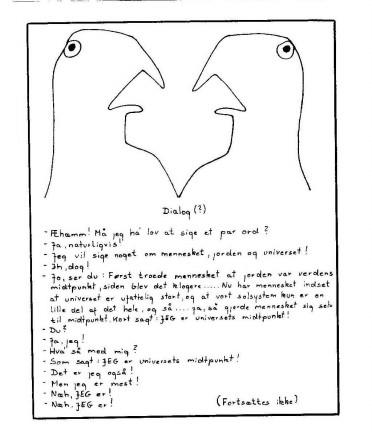 Dialog (?)
- Æhamm! Må jeg ha' lov at sige et par ord?
- Ja, naturligvis!
- Jeg vil sige noget om mennesket, jorden og universet!
- Ih, dog!
- Jo, ser du: Først troede mennesket at jorden var verdens
midtpunkt, siden blev det klogere..... Nu har mennesket indset
at universet er ufattelig stort, og at vort solsystem kun er en
lille del af det hele, og så.... ja, så gjorde mennesket sig selv
til midtpunkt. Kort sagt: JEG er universets midtpunkt!
- Du?
- Ja, jeg!
- Hva' så med mig?
- Som sagt: JEG er universets midtpunkt!
- Det er jeg også!
- Men jeg er mest!
- Næh, JEG er!
- Næh, JEG er!
(Fortsættes ikke)